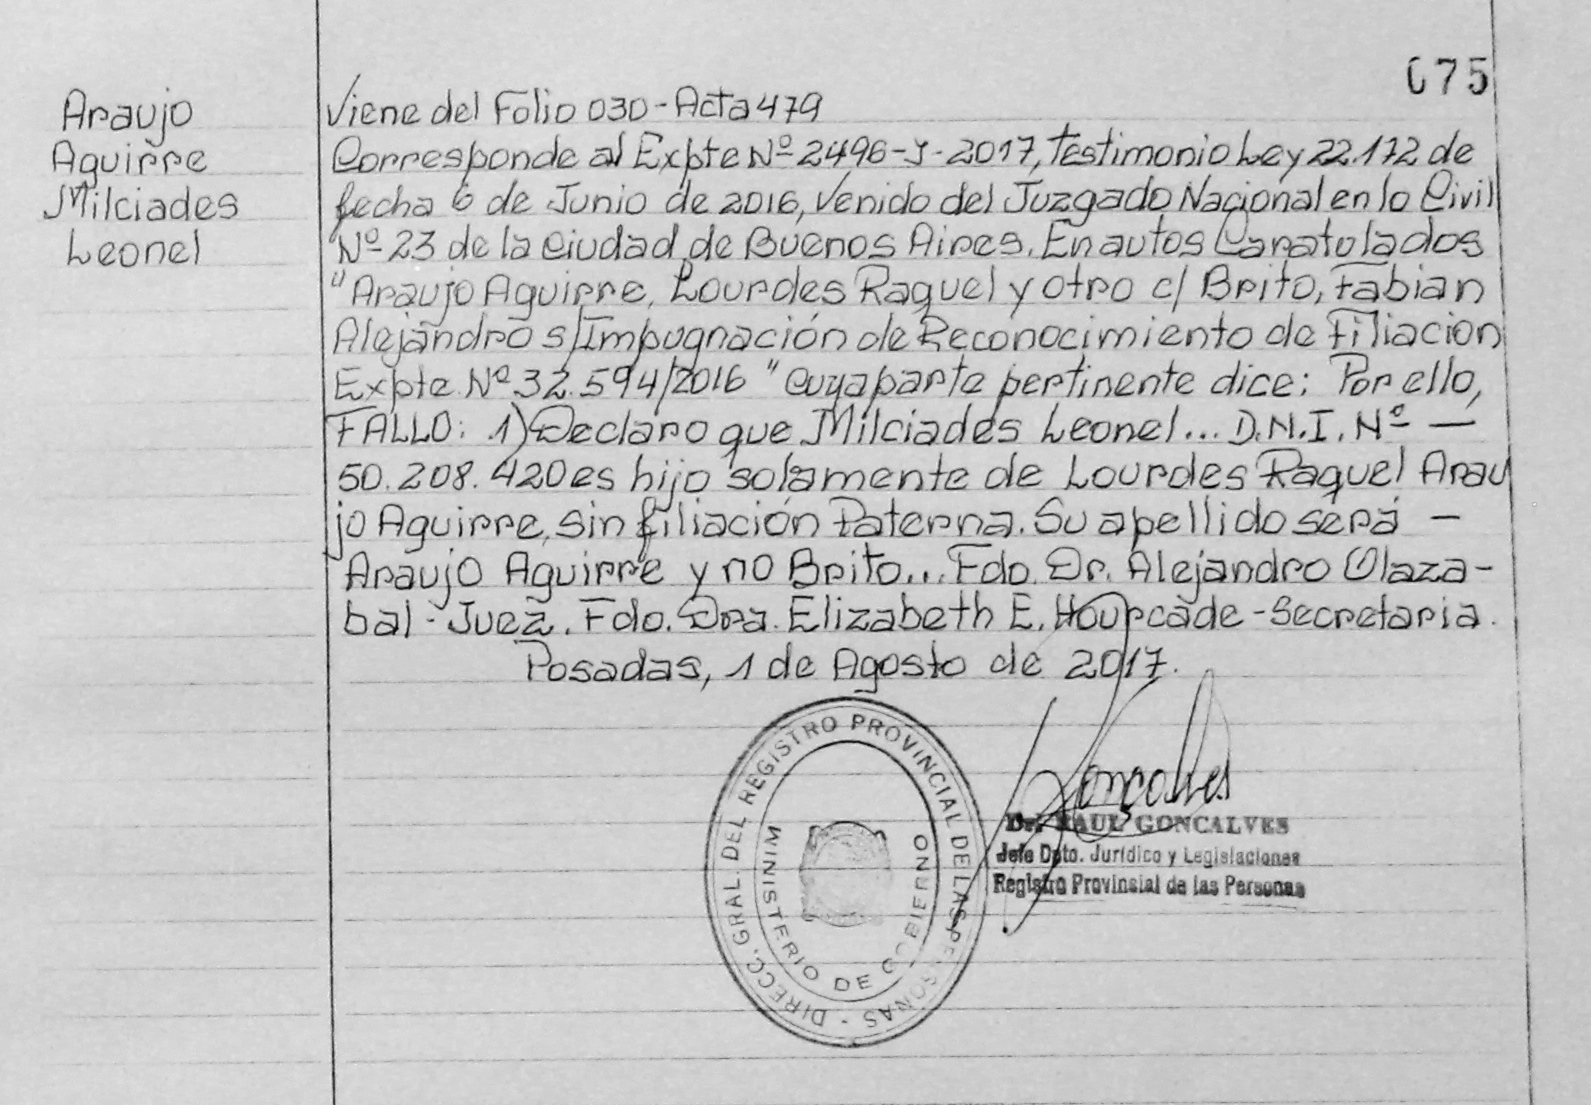 075
Araujo
Aguirre
Milciades
Leonel
Viene del Folio 030 - Acta 479
Corresponde al Expte Nº 2496-J-2017, Testimonio Ley 22.172 de
fecha 6 de Junio de 2016, Venido del Juzgado Nacional en lo Civil
Nº 23 de la Ciudad de Buenos Aires. En autos Caratulados
"Araujo Aguirre, Lourdes Raquel y otro c/ Brito, Fabian
Alejandro s/Impugnación de Reconocimiento de Filiacion
Expte. Nº 32.594/2016" Cuya parte pertinente dice: Por ello,
FALLO: 1) Declaro que Milciades Leonel... D.N.I. Nº —
50.208.420 es hijo solamente de Lourdes Raquel Arau
jo Aguirre, sin filiación Paterna. Su apellido será —
Araujo Aguirre y no Brito... Fdo. Dr. Alejandro Olaza-
bal - Juez. Fdo. Dra. Elizabeth E. Hourcade - Secretaria.
Posadas, 1 de Agosto de 2017.
DIRECC. GRAL. DEL REGISTRO PROVINCIAL DE LAS PERSONAS -
MINISTERIO DE GOBIERNO
Goncalves
Dr. RAUL GONCALVES
Jefe Dpto. Jurídico y Legislaciones
Registro Provincial de las Personas